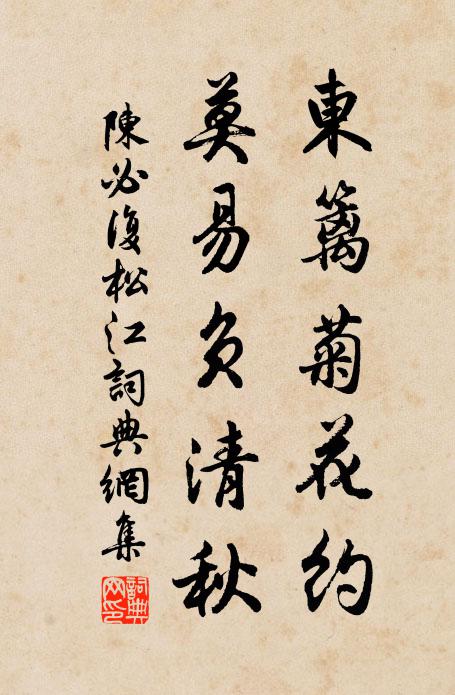 東籬菊花約
莫易負清秋
陳必復松江詞典網集
詞典
网印